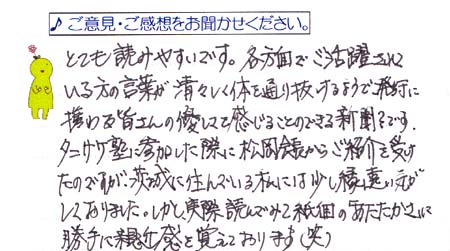 ♪ご意見・ご感想をお聞かせください。
とても読みやすいです。各方面でご活躍されて
いる方の言葉が清々しく体を通り抜けるようで発行に
携わる皆さんの優しさも感じることのできる新聞です。
タニサケ塾に参加した際に松岡会長からご紹介を受け
たのですが、茨城に住んでいる私には少し縁遠い気が
しておりました。しかし実際読んでみて紙面のあたたかさに
勝手に親近感を覚えております(笑)